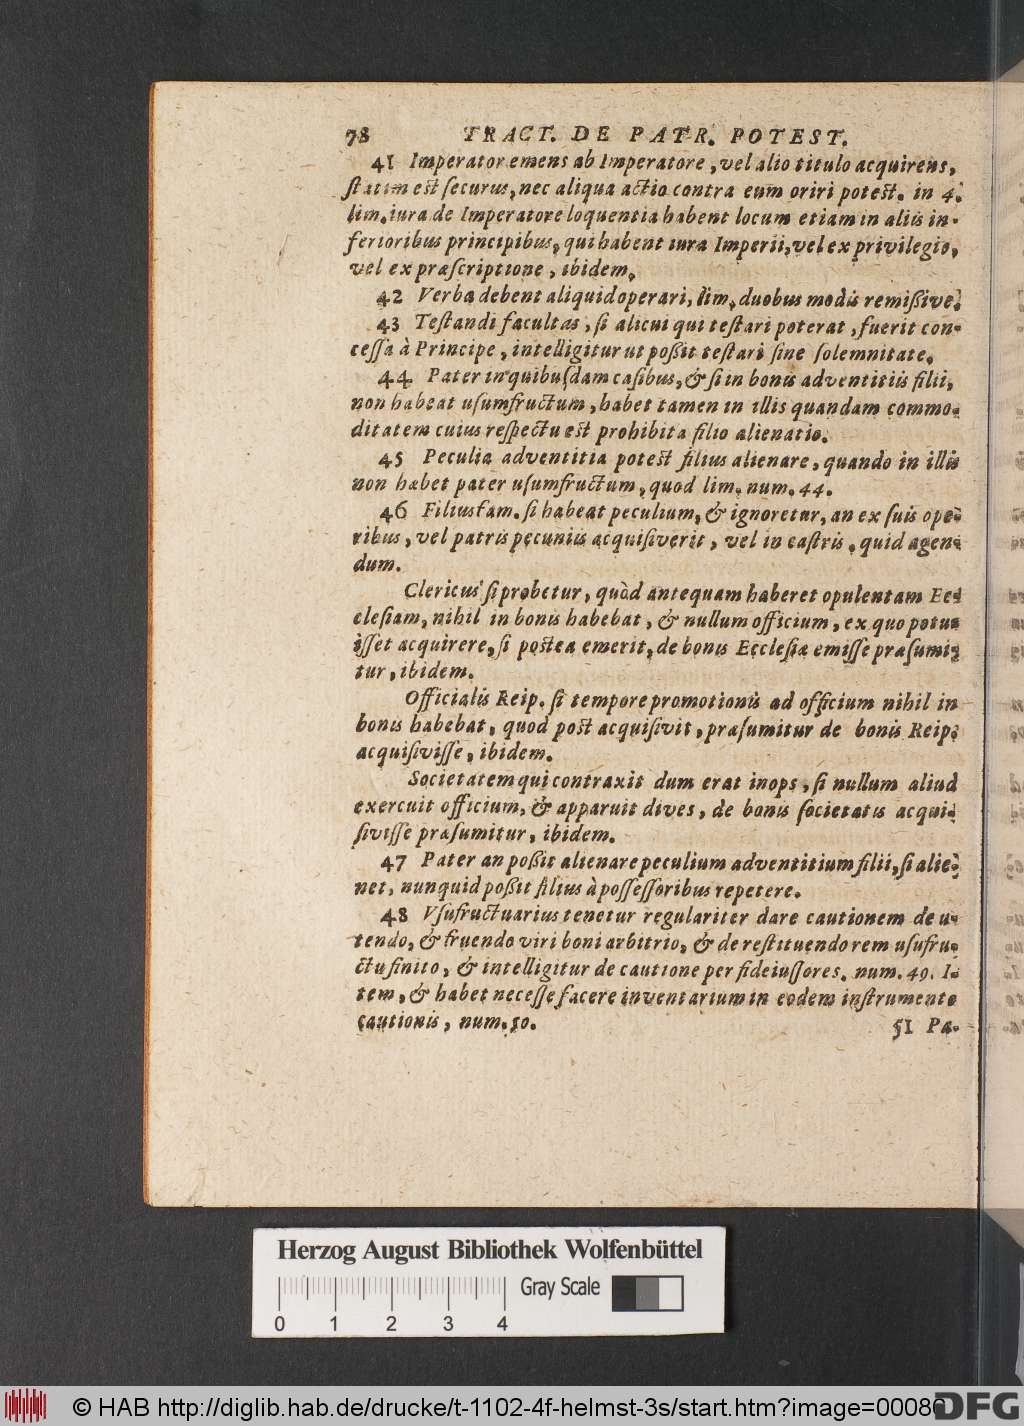 78 TRACT. DE PATR. POTEST.
41 Imperator emens ab Imperatore, vel alio titulo acquirens,
ſtatim est ſecurus, nec aliqua actio contra eum oriri potest. in 4.
lim. iura de Imperatore loquentia habent locum etiam in aliis in-
ferioribus principibus, qui habent iura Imperii, vel ex privilegio,
vel ex præſcriptione, ibidem.
42 Verba debent aliquid operari, lim. duobus modis remißive.
43 Teſtandi facultas, ſi alicui qui teſtari poterat, fuerit con-
ceſſa à Principe, intelligitur ut poßit teſtari ſine ſolemnitate.
44 Pater in quibuſdam caſibus, & ſi in bonis adventitiis filii,
non habeat uſumfructum, habet tamen in illis quandam commo-
ditatem cuius reſpectu est prohibita filio alienatio.
45 Peculia adventitia potest filius alienare, quando in illis
non habet pater uſumfructum, quod lim. num. 44.
46 Filiusfam. ſi habeat peculium, & ignoretur, an ex ſuis ope-
ribus, vel patris pecuniis acquiſiverit, vel in caſtris, quid agen-
dum.
Clericus ſi probetur, quòd antequam haberet opulentam Ec-
cleſiam, nihil in bonis habebat, & nullum officium, ex quo potu-
iſſet acquirere, ſi postea emerit, de bonis Eccleſiæ emiſſe præſumi-
tur, ibidem.
Officialis Reip. ſi tempore promotionis ad officium nihil in
bonis habebat, quod post acquiſivit, præſumitur de bonis Reip.
acquiſiviſſe, ibidem.
Societatem qui contraxit dum erat inops, ſi nullum aliud
exercuit officium, & apparuit dives, de bonis ſocietatis acqui-
ſiviſſe præſumitur, ibidem.
47 Pater an poßit alienare peculium adventitium filii, ſi alie-
net, nunquid poßit filius à poſſeſſoribus repetere.
48 Vſufructuarius tenetur regulariter dare cautionem de u-
tendo, & fruendo viri boni arbitrio, & de reſtituendo rem uſufru-
ctu finito, & intelligitur de cautione per fideiuſſores. num. 49. I-
tem, & habet neceſſe facere inventarium in eodem inſtrumento
cautionis, num. 50.
51 Pa-
Herzog August Bibliothek Wolfenbüttel
Gray Scale
0 1 2 3 4
© HAB http://diglib.hab.de/drucke/t-1102-4f-helmst-3s/start.htm?image=00080
DFG